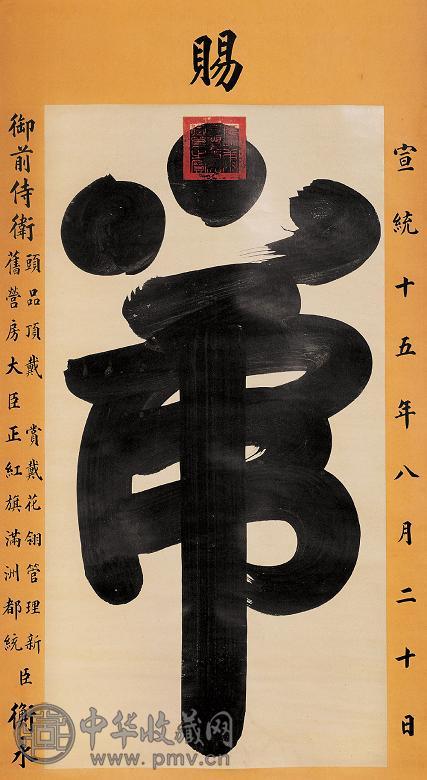 賜
宣統十五年八月二十日
御前侍衛
頭品頂戴 賞戴花翎管理新
舊營房大臣正紅旗滿洲都統
臣衡永
中华收藏网
www.pmv.cn